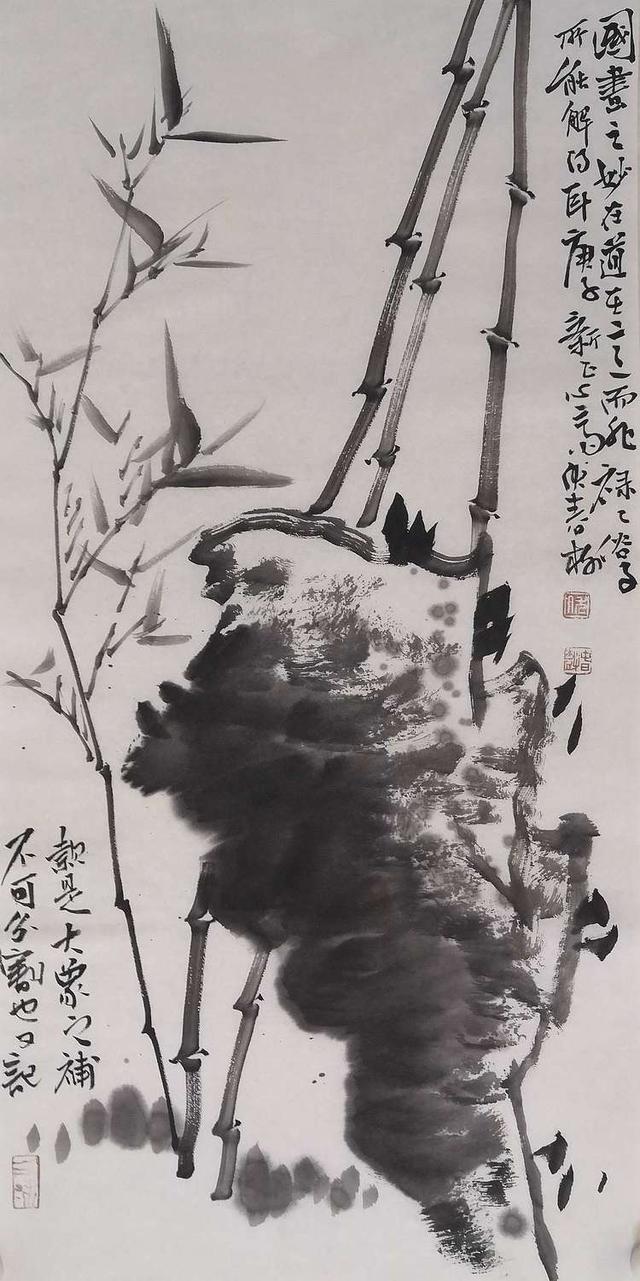 國畫之妙在道在而非碌〻俗子
所能解得庚子新正春
款是大象之補
不可分割也又記